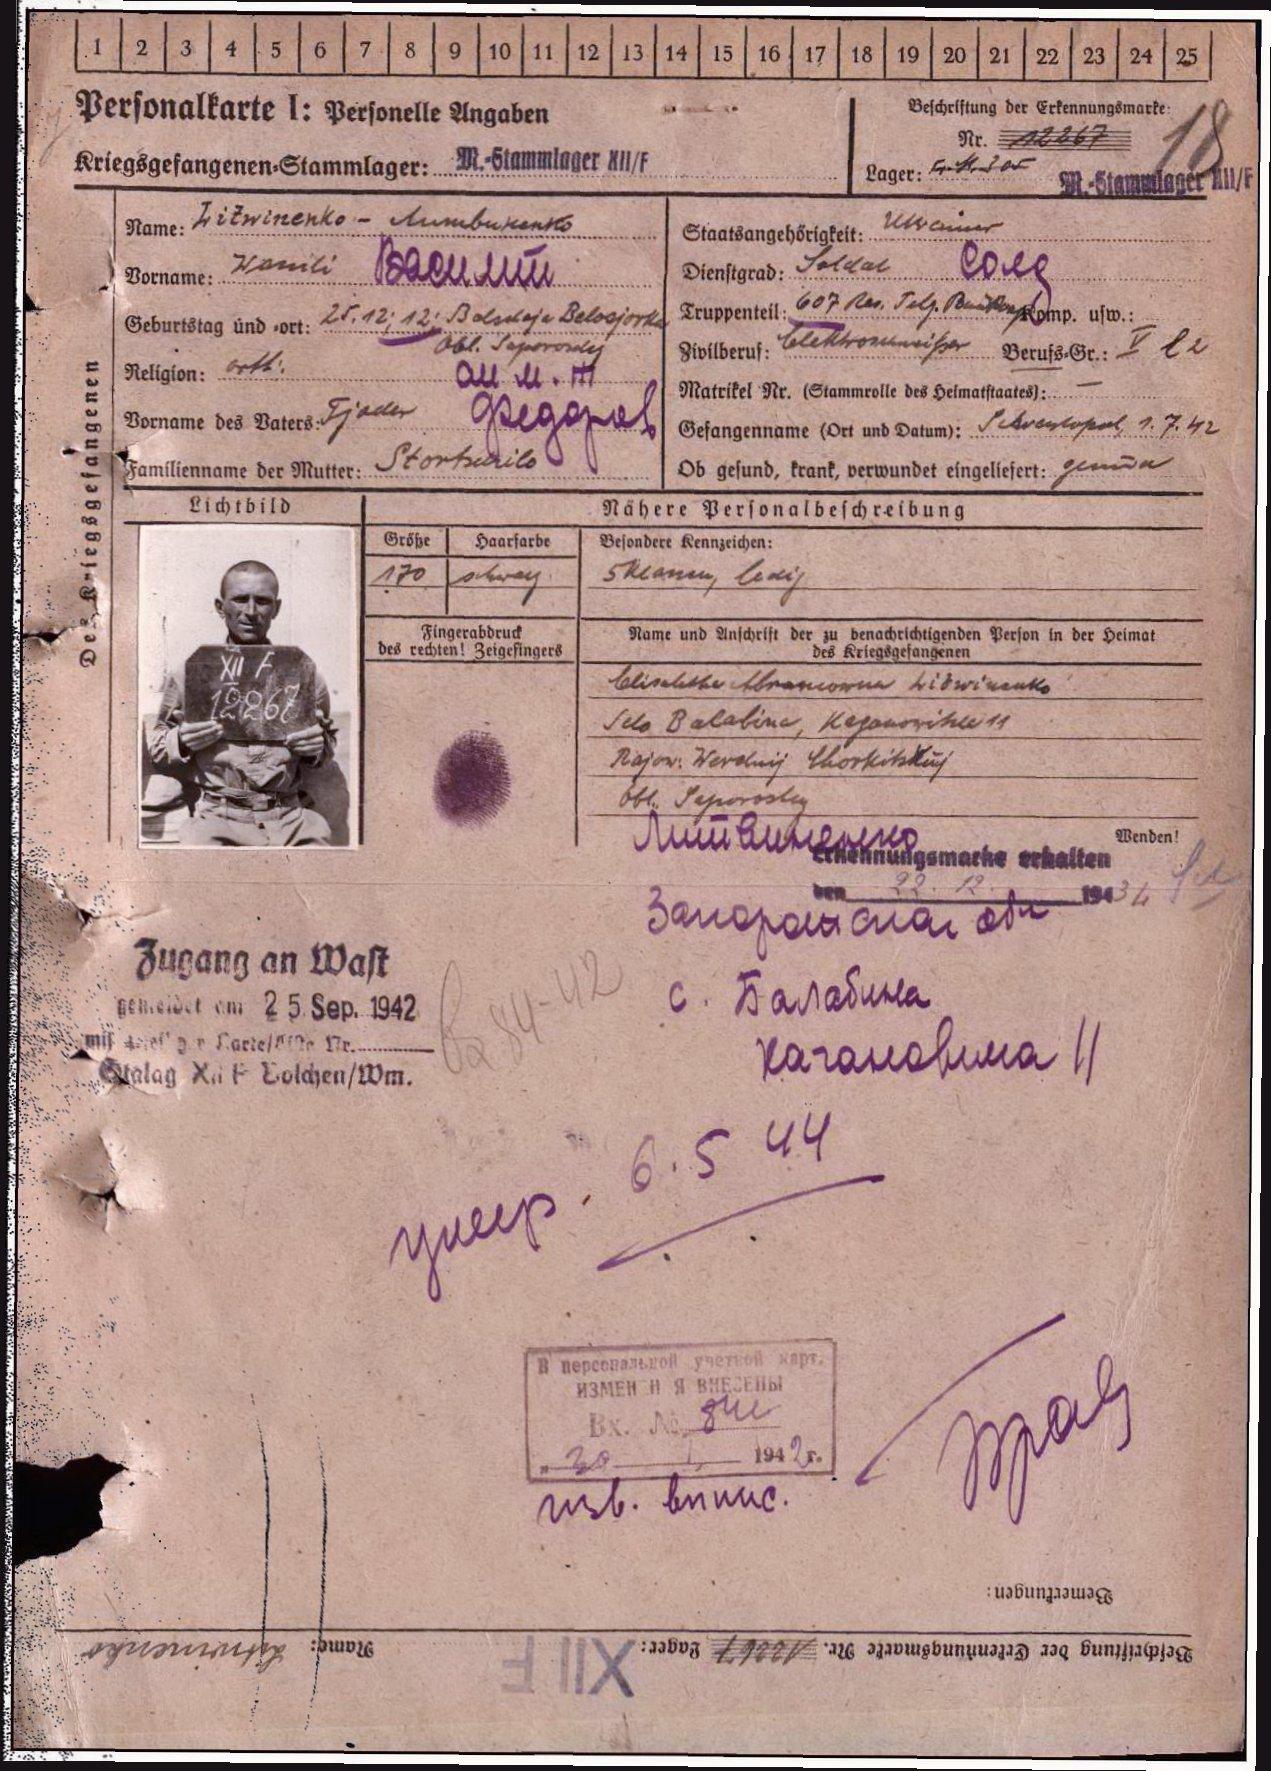 1 2 3 4 5 6 7 8 9 10 11 12 13 14 15 16 17 18 19 20 21 22 23 24 25
Personalkarte I: Personelle Angaben
Kriegsgefangenen-Stammlager: M.-Stammlager XII/F
Beschriftung der Erkennungsmarke:
Nr. 12267
18
Lager:
M.-Stammlager XII/F
Des Kriegsgefangenen
Name: Litwinenko - Литвиненко
Vorname: Wasili Василий
Geburtstag und -ort: 25.12.12. Belosjorka
Obl. Saporoshj
Religion: orth.
Vorname des Vaters: Fjader Федоров
Familienname der Mutter:
Staatsangehörigkeit: Ukrainer
Dienstgrad: Soldat Солд
Truppenteil: 607 Res. Komp. usw.:
Zivilberuf: Elektroschweißer Berufs-Gr.: V
Matrikel Nr. (Stammrolle des Heimatstaates): —
Gefangenname (Ort und Datum): Sewastopol, 1.7.42
Ob gesund, krank, verwundet eingeliefert: gesund
Lichtbild
XII F
12267
Nähere Personalbeschreibung
Größe Haarfarbe Besondere Kennzeichen:
170 schwarz 5 Klassen, ledig
Fingerabdruck
des rechten! Zeigefingers
Name und Anschrift der zu benachrichtigenden Person in der Heimat
des Kriegsgefangenen
Elisabetha Abramowna Litwinenko
Selo Balabina, Kaganowitscha 11
Rajon: Werchnij Chortitskij
Obl. Saporoshj
Wenden!
Литвиненко
Erkennungsmarke erhalten
den 22. 12. 1943
Запорожская обл
с. Балабина
Кагановича 11
Zugang an Wast
gemeldet am 25. Sep. 1942
mit Karte/Liste Nr.
Stalag XII F Bolchen/Wm.
84-42
умер. 6.5 44
В персональной учетной карт.
ИЗМЕНЕНИЯ ВНЕСЕНЫ
Вх. №
„30 1 1942г.
изв. впис.
Bemerkungen:
Beschriftung der Erkennungsmarke Nr. 12267 Lager: XII F Name: Litwinenko